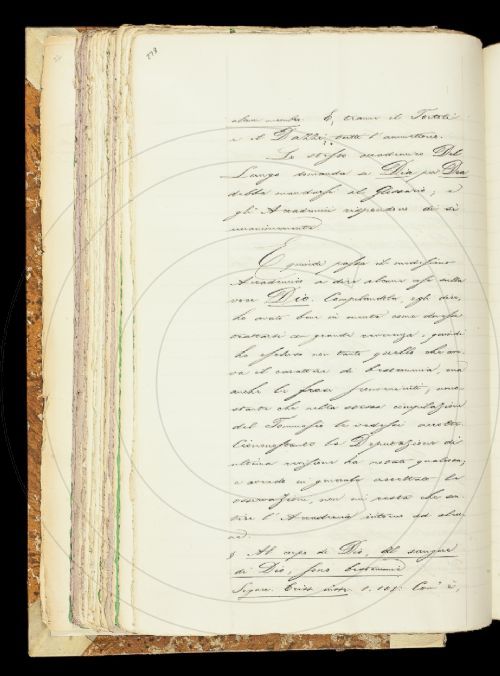 278
alcun membro. E, tranne il Tortoli
e il Dazzi, tutti l'ammettono.
Lo stesso accademico Del
Lungo domanda se Dia per Dea
debba mandarsi al Glossario; e
gli Accademici rispondono di sì
unanimemente.
E quindi passa il medesimo
Accademico a dire alcune cose sulla
voce Dio. Compilandola, egli dice,
ho avuto bene in mente come dovesse
trattarsi con grande riverenza, quindi
ho escluso non tanto quello che
va il carattere di bestemmia, ma
anche le frasi irriverenti, nono
stante che nella stessa compilazione
del Tommaseo le vedessi accolte.
la Deputazione di
ultima revisione ha notato qualcosa;
e avendo in generale accettato le
osservazioni, non mi resta che
tire l'Accademia intorno ad alcu
ne.
§ Al corpo di Dio, al sangue
di Dio, sono bestemmie
Segner. Crist. instr. 1. Com' è,